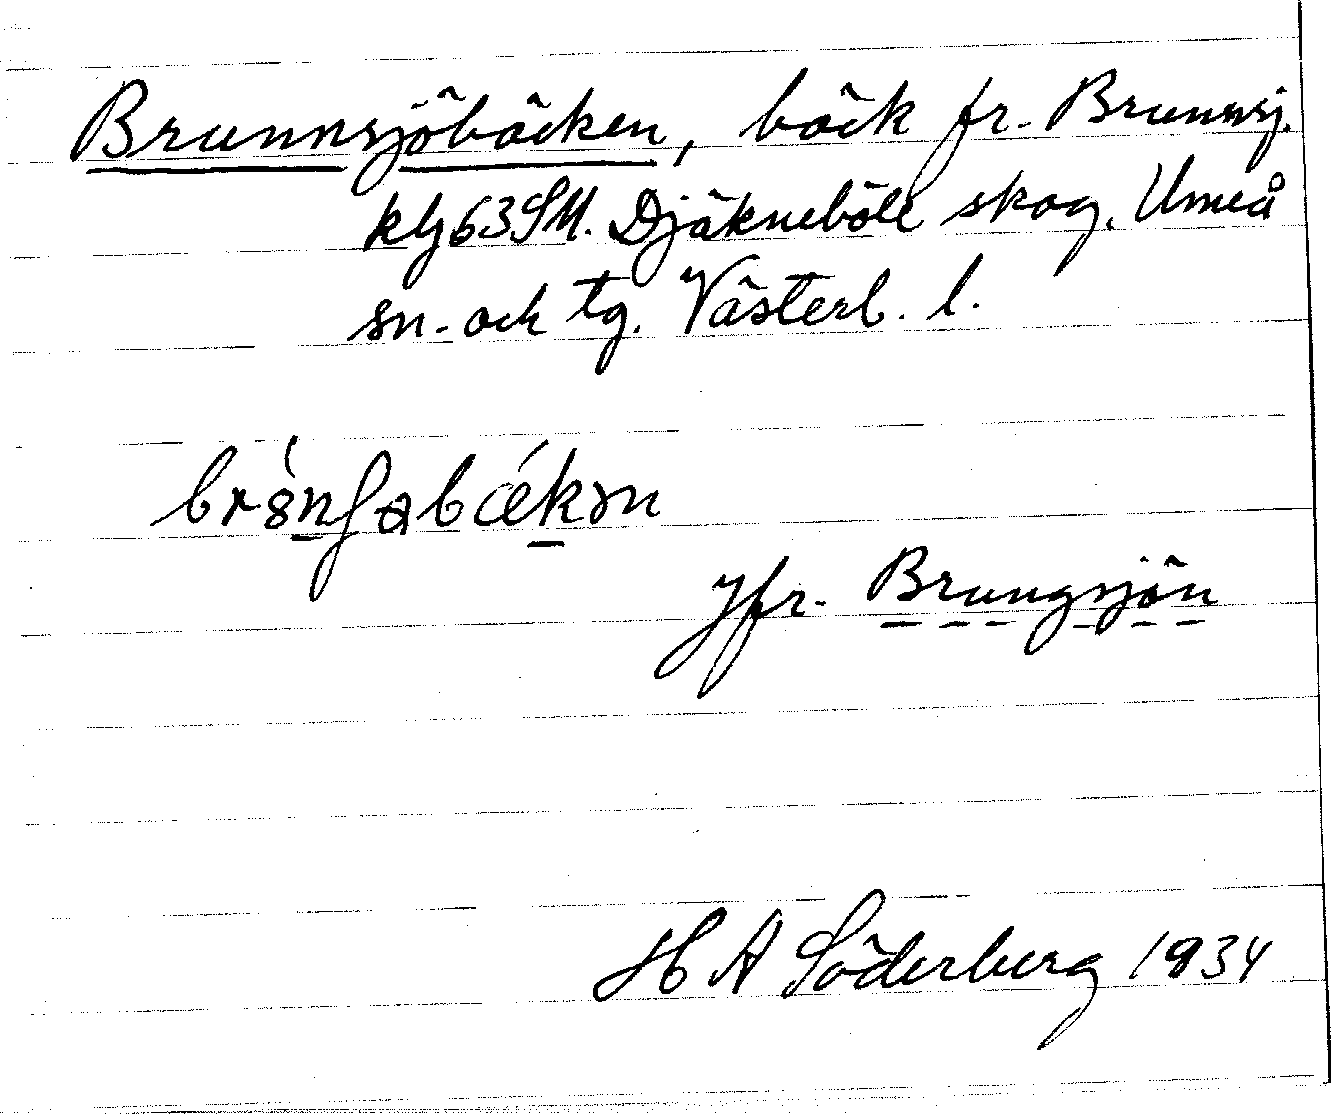 Brunnsjöbäcken, bäck fr. Brunnsj.
klj 63 SM. Djäkneböle skog. Umeå
sn. och tg. Västerb. l.
Jfr. Brungsjön
H A Söderberg 1934